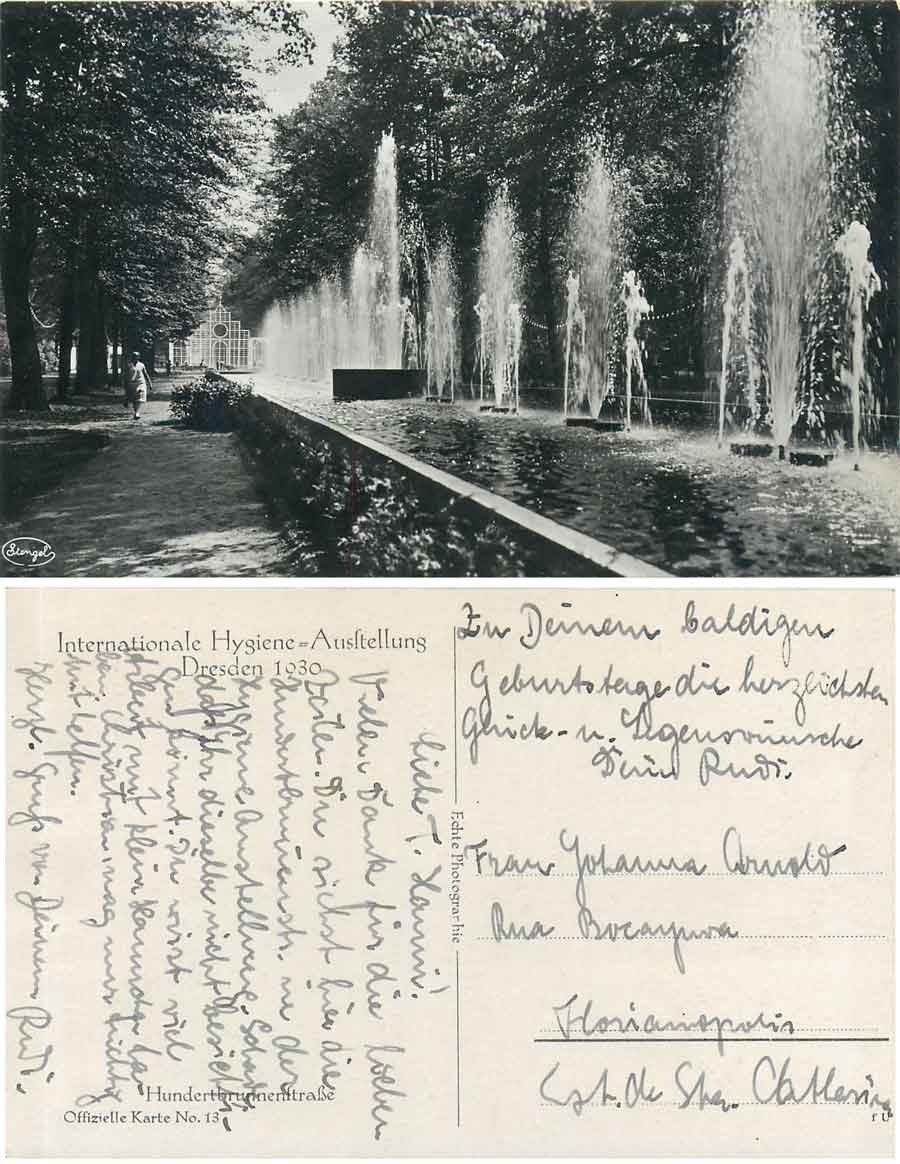 Stengel
Internationale Hygiene=Ausstellung
Dresden 1930
Liebe T. Hanni!
Vielen Dank für die lieben
Du siehst hier die
Hundertbrunnenstr. in der
Hygiene Ausstellung. Schade,
daß Ihr dieselbe nicht
könnt. Du wirst viel
Arbeit mit klein
mag nur tüchtig
mithelfen.
Herzl. Gruß von Deinem Rudi.
Hundertbrunnenstraße
Offizielle Karte No. 13
Echte Photographie
Zu Deinem baldigen
Geburtstage die herzlichsten
Glück- u. Segenswünsche
Dein Rudi.
Frau Johanna Arnold
Rua Bocayuva
Florianopolis
Est. de Sta. Catharina
f U